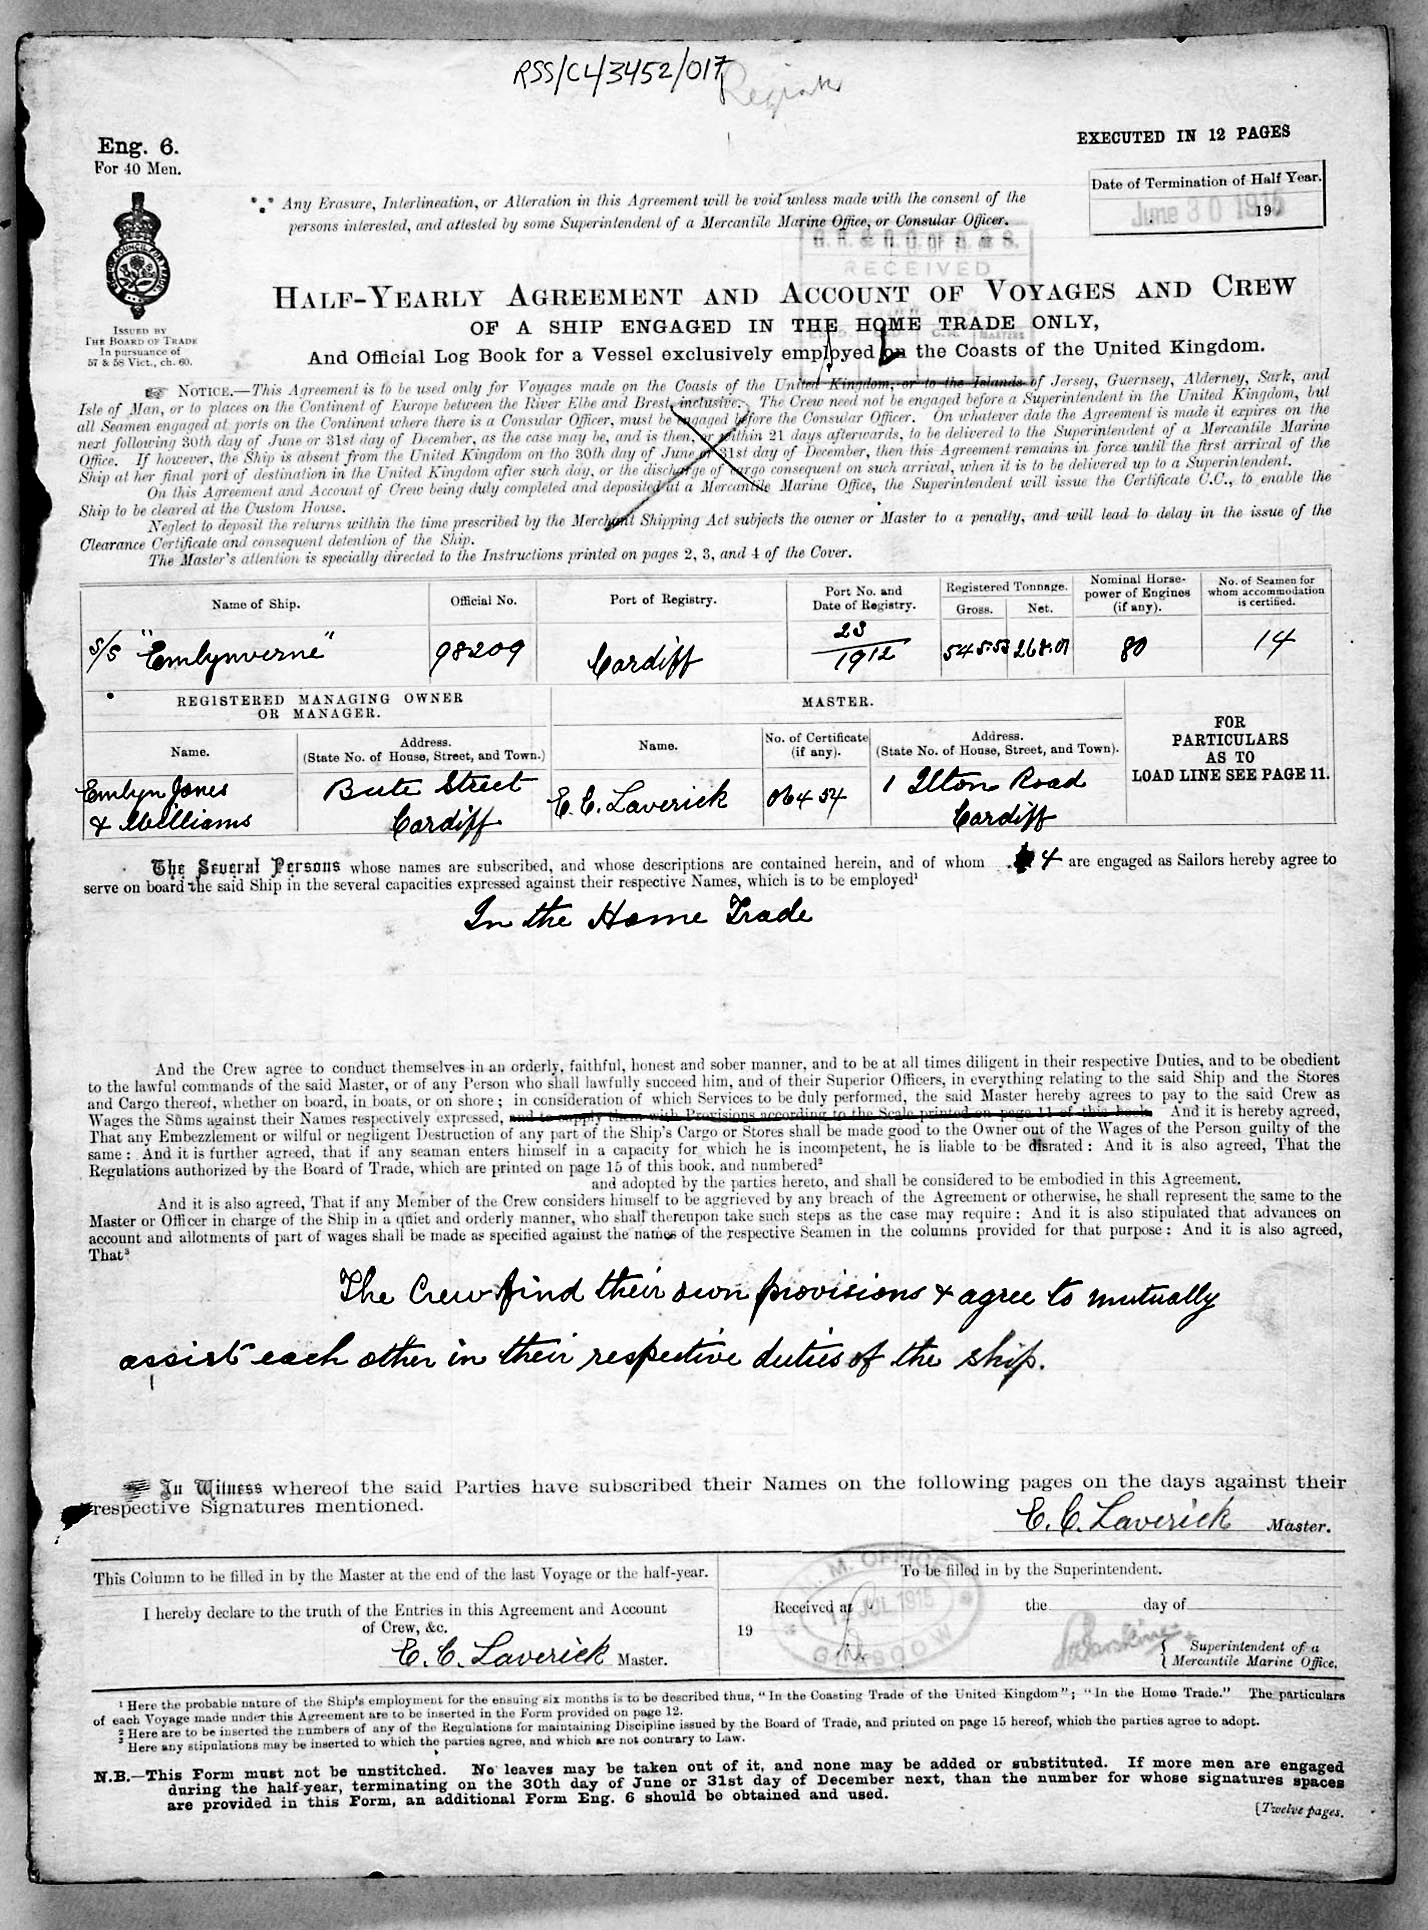 RSS/CL/3452/017
Eng. 6.
For 40 Men.
EXECUTED IN 12 PAGES
Date of Termination of Half Year.
June 30 1915 19
Any Erasure, Interlineation, or Alteration in this Agreement will be void unless made with the consent of the
persons interested, and attested by some Superintendent of a Mercantile Marine Office, or Consular Officer.
RECEIVED
ISSUED BY
THE BOARD OF TRADE
In pursuance of
57 & 58 Vict., ch. 60.
HALF-YEARLY AGREEMENT AND ACCOUNT OF VOYAGES AND CREW
OF A SHIP ENGAGED IN THE HOME TRADE ONLY,
And Official Log Book for a Vessel exclusively employed on the Coasts of the United Kingdom.
☞ NOTICE.—This Agreement is to be used only for Voyages made on the Coasts of the United Kingdom, or to the Islands of Jersey, Guernsey, Alderney, Sark, and
Isle of Man, or to places on the Continent of Europe between the River Elbe and Brest, inclusive. The Crew need not be engaged before a Superintendent in the United Kingdom, but
all Seamen engaged at ports on the Continent where there is a Consular Officer, must be engaged before the Consular Officer. On whatever date the Agreement is made it expires on the
next following 30th day of June or 31st day of December, as the case may be, and is then, or within 21 days afterwards, to be delivered to the Superintendent of a Mercantile Marine
Office. If however, the Ship is absent from the United Kingdom on the 30th day of June or 31st day of December, then this Agreement remains in force until the first arrival of the
Ship at her final port of destination in the United Kingdom after such day, or the discharge of cargo consequent on such arrival, when it is to be delivered up to a Superintendent.
On this Agreement and Account of Crew being duly completed and deposited at a Mercantile Marine Office, the Superintendent will issue the Certificate C.C., to enable the
Ship to be cleared at the Custom House.
Neglect to deposit the returns within the time prescribed by the Merchant Shipping Act subjects the owner or Master to a penalty, and will lead to delay in the issue of the
Clearance Certificate and consequent detention of the Ship.
The Master's attention is specially directed to the Instructions printed on pages 2, 3, and 4 of the Cover.
Name of Ship. Official No. Port of Registry. Port No. and Date of Registry. Registered Tonnage. Gross. Net. Nominal Horse-power of Engines (if any). No. of Seamen for whom accommodation is certified.
S/S "Emlynverne" 98209 Cardiff 23/1912 545.53 268.01 80 14
REGISTERED MANAGING OWNER
OR MANAGER.
MASTER.
Name. Address. (State No. of House, Street, and Town.) Name. No. of Certificate (if any). Address. (State No. of House, Street, and Town).
FOR
PARTICULARS
AS TO
LOAD LINE SEE PAGE 11.
Emlyn Jones Bute Street E. C. Laverick 06454 1 Ilton Road
& Williams Cardiff Cardiff
The Several Persons whose names are subscribed, and whose descriptions are contained herein, and of whom 4 are engaged as Sailors hereby agree to
serve on board the said Ship in the several capacities expressed against their respective Names, which is to be employed¹
In the Home Trade
And the Crew agree to conduct themselves in an orderly, faithful, honest and sober manner, and to be at all times diligent in their respective Duties, and to be obedient
to the lawful commands of the said Master, or of any Person who shall lawfully succeed him, and of their Superior Officers, in everything relating to the said Ship and the Stores
and Cargo thereof, whether on board, in boats, or on shore; in consideration of which Services to be duly performed, the said Master hereby agrees to pay to the said Crew as
Wages the Sums against their Names respectively expressed, and to supply them with Provisions according to the Scale printed on page 11 of this book. And it is hereby agreed,
That any Embezzlement or wilful or negligent Destruction of any part of the Ship's Cargo or Stores shall be made good to the Owner out of the Wages of the Person guilty of the
same: And it is further agreed, that if any seaman enters himself in a capacity for which he is incompetent, he is liable to be disrated: And it is also agreed, That the
Regulations authorized by the Board of Trade, which are printed on page 15 of this book, and numbered²
and adopted by the parties hereto, and shall be considered to be embodied in this Agreement.
And it is also agreed, That if any Member of the Crew considers himself to be aggrieved by any breach of the Agreement or otherwise, he shall represent the same to the
Master or Officer in charge of the Ship in a quiet and orderly manner, who shall thereupon take such steps as the case may require: And it is also stipulated that advances on
account and allotments of part of wages shall be made as specified against the names of the respective Seamen in the columns provided for that purpose: And it is also agreed,
That³
The Crew find their own provisions & agree to mutually
assist each other in their respective duties of the ship.
In Witness whereof the said Parties have subscribed their Names on the following pages on the days against their
respective Signatures mentioned.
E. C. Laverick Master.
This Column to be filled in by the Master at the end of the last Voyage or the half-year.
I hereby declare to the truth of the Entries in this Agreement and Account
of Crew, &c.
E. C. Laverick Master.
To be filled in by the Superintendent.
Received at the day of
19
M. M. OFFICE
JUL 1915
GLASGOW
Superintendent of a
Mercantile Marine Office.
¹ Here the probable nature of the Ship's employment for the ensuing six months is to be described thus, "In the Coasting Trade of the United Kingdom"; "In the Home Trade." The particulars
of each Voyage made under this Agreement are to be inserted in the Form provided on page 12.
² Here are to be inserted the numbers of any of the Regulations for maintaining Discipline issued by the Board of Trade, and printed on page 15 hereof, which the parties agree to adopt.
³ Here any stipulations may be inserted to which the parties agree, and which are not contrary to Law.
N.B.—This Form must not be unstitched. No leaves may be taken out of it, and none may be added or substituted. If more men are engaged
during the half-year, terminating on the 30th day of June or 31st day of December next, than the number for whose signatures spaces
are provided in this Form, an additional Form Eng. 6 should be obtained and used.
[Twelve pages.